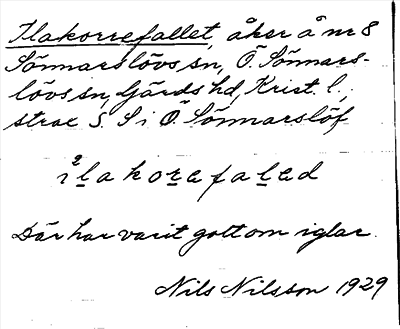 Ilakorrefallet, åker å nr 8
Sönnarslövs sn, Ö. Sönnars-
lövs sn, Gärds hd, Krist. l.,
strax S. S i Ö. Sönnarslöf
ilakorefalad
Där har varit gott om iglar.
Nils Nilsson 1929